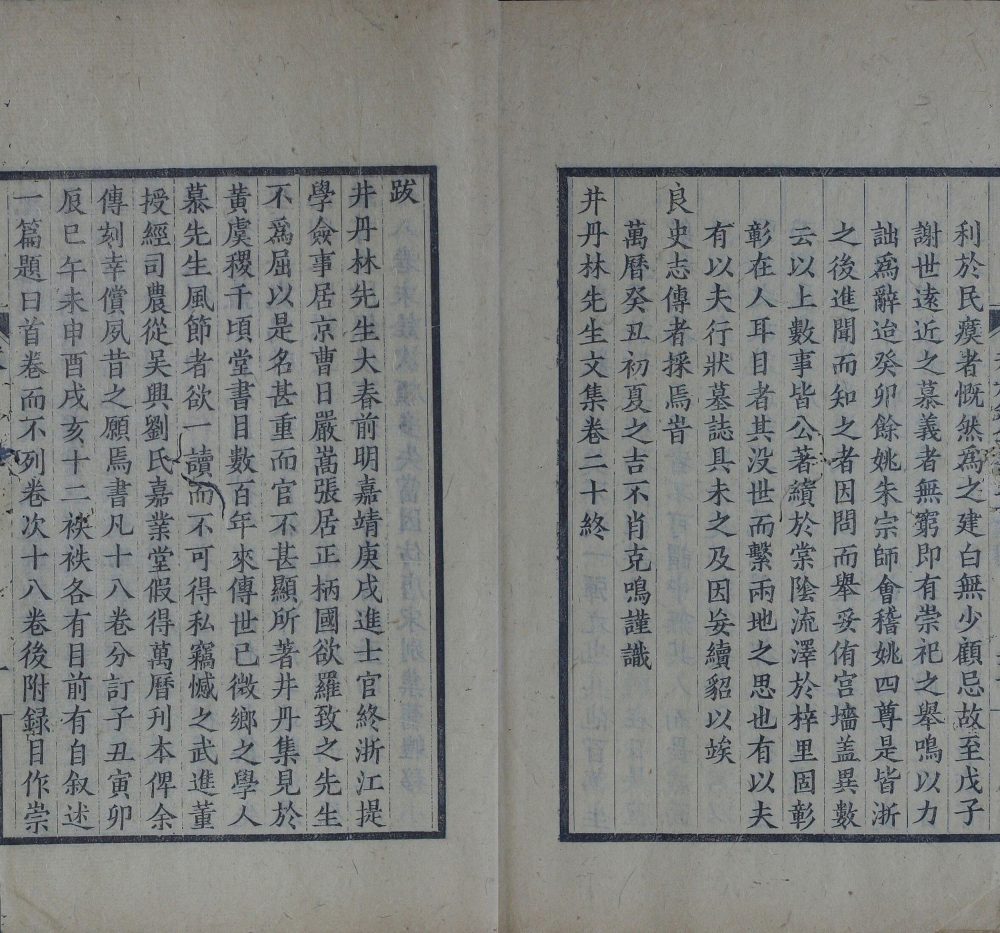 利於民瘼者慨然為之建白無少顧忌故至戊子
謝世遠近之慕義者無窮即有崇祀之舉鳴以力
詘為辭迨癸卯餘姚朱宗師會稽姚四尊是皆浙
之後進聞而知之者因問而舉妥侑宫墻盖異數
云以上數事皆公著績於棠陰流澤於梓里固彰
彰在人耳目者其没世而繫兩地之思也有以夫
有以夫行狀墓誌具未之及因妄續貂以竢
良史志傳者採焉昔
萬曆癸丑初夏之吉不肖克鳴謹識
井丹林先生文集卷二十終
跋
井丹林先生大春前明嘉靖庚戌進士官終浙江提
學僉事居京曹日嚴嵩張居正柄國欲羅致之先生
不為屈以是名甚重而官不甚顯所著井丹集見於
黃虞稷千頃堂書目數百年來傳世已微鄉之學人
慕先生風節者欲一讀而不可得私竊憾之武進董
授經司農從吳興劉氏嘉業堂假得萬曆刊本俾余
傳刻幸償夙昔之願焉書凡十八卷分訂子丑寅卯
辰巳午未申酉戌亥十二袠袠各有目前有自叙述
一篇題曰首卷而不列卷次十八卷後附録目作崇